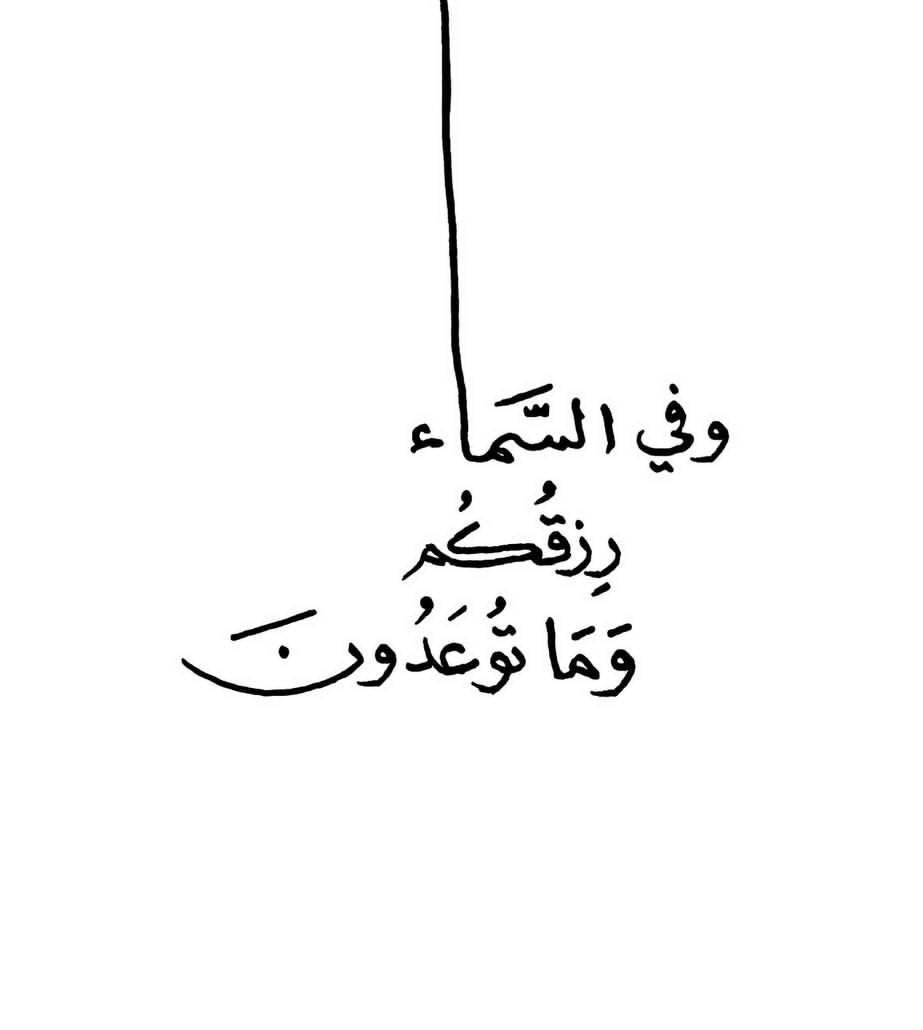 وفي السَّمَاء
رِزقُكُم
وَمَا تُوعَدُونَ